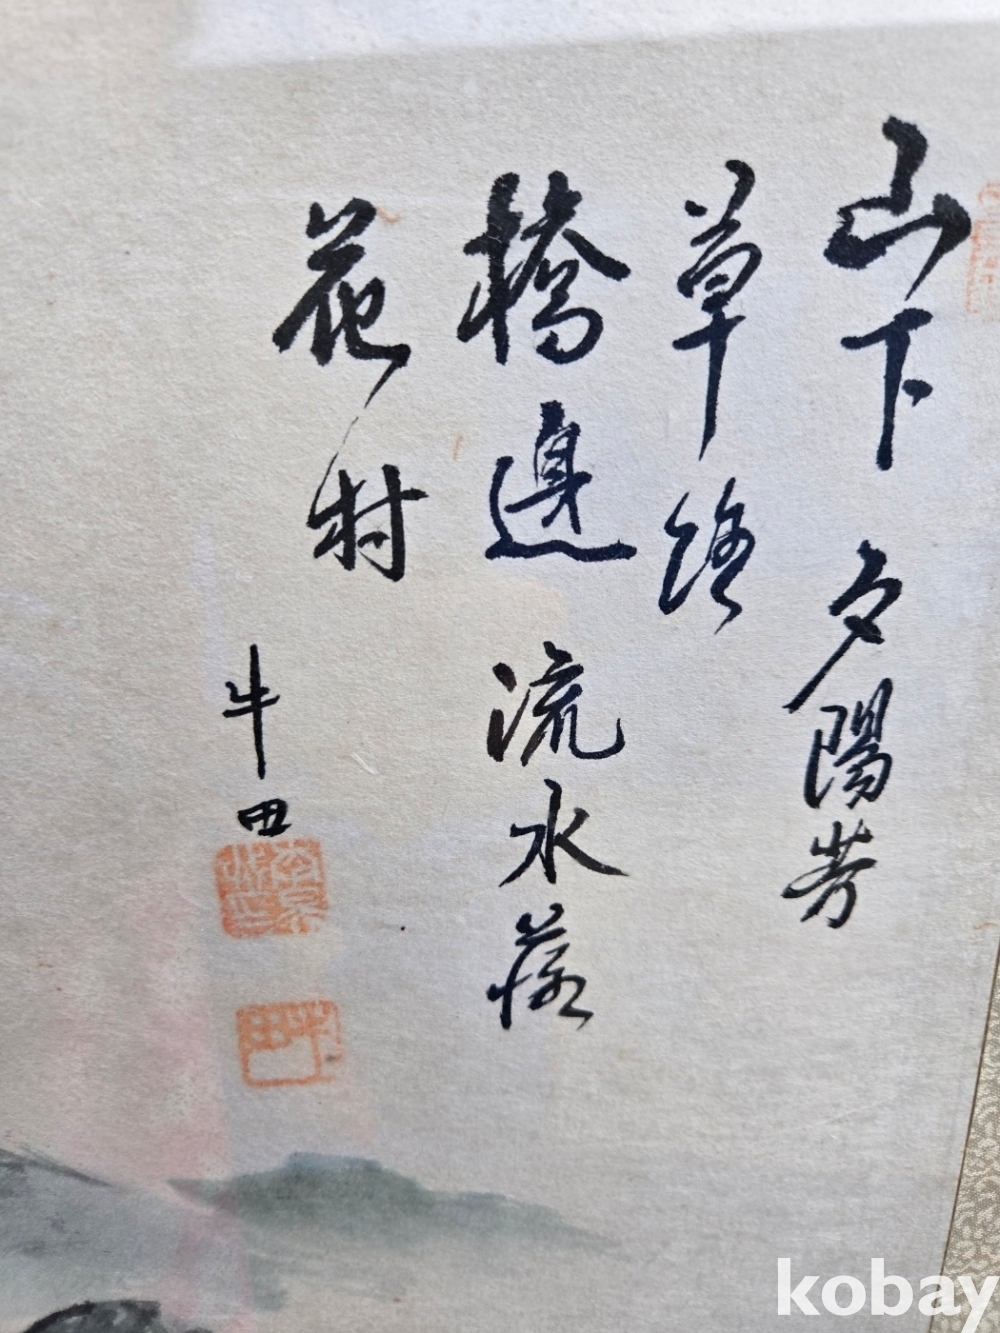 山下夕陽芳
草路
橋邊流水落
花村
牛田
kobay